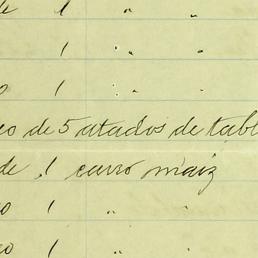 de 1 " "
1 " "
o 1 " "
eo de 5 atados de tabl
de 1 carro maiz
o 1 " "
eo 1 " "